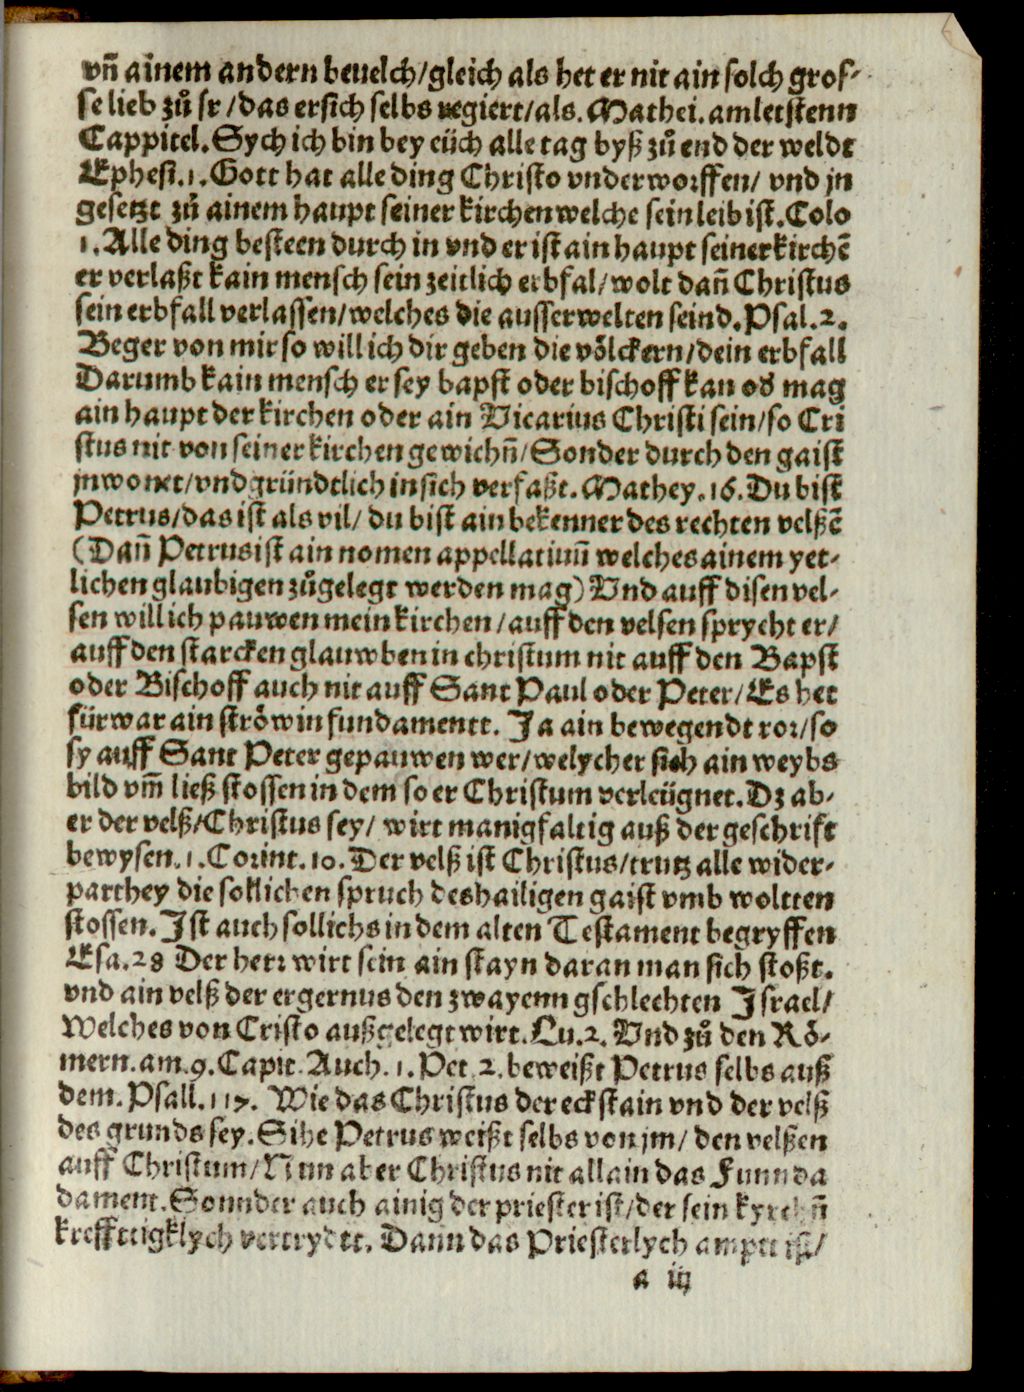 vñ ainem andern beuelch/gleich als het er nit ain solch gros-
se lieb zů jr/das er sich selbs regiert/als. Mathei. am letstenn
Cappitel. Sych ich bin bey eüch alle tag byß zů end der weldt
Ephesi.1. Gott hat alle ding Christo vnderworffen/ vnd jn
gesetzt zů ainem haupt seiner kirchen welche sein leib ist. Colo
1. Alle ding besteen durch in vnd er ist ain haupt seiner kirchē
er verlaßt kain mensch sein zeitlich erbfal/wolt dañ Christus
sein erbfall verlassen/welches die ausserwelten seind. Psal.2.
Beger von mir so will ich dir geben die völckern/dein erbfall
Darumb kain mensch er sey bapst oder bischoff kan od̕ mag
ain haupt der kirchen oder ain Vicarius Christi sein/so Cri
stus nit von seiner kirchen gewichñ/Sonder durch den gaist
jnwonet/vnd gründtlich in sich verfaßt. Mathey.16. Du bist
Petrus/das ist als vil/ du bist ain bekenner des rechten velßē
(Dañ Petrus ist ain nomen appellatiuū welches ainem yet-
lichen glaubigen zůgelegt werden mag) Vnd auff disen vel-
sen will ich pauwen mein kirchen/auff den velsen sprycht er/
auff den starcken glauwben in christum nit auff den Bapst
oder Bischoff auch nit auff Sant Paul oder Peter/Es het
fürwar ain ströwin fundamentt. Ja ain bewegendt ror/so
sy auff Sant Peter gepauwen wer/welycher sich ain weybs
bild vm̃ ließ stossen in dem so er Christum verleügnet. Dz ab-
er der velß/Christus sey/ wirt manigfaltig auß der geschrift
bewysen.1. Corint.10. Der velß ist Christus/trutz alle wider-
parthey die sollichen spruch des hailigen gaist vmb woltten
stossen. Ist auch sollichs in dem alten Testament begryffen
Esa.28 Der herr wirt sein ain stayn daran man sich stoßt.
vnd ain velß der ergernus den zwayenn gschlechten Israel/
Welches von Cristo außgelegt wirt. Lu.2. Vnd zů den Rö-
mern. am.9. Capit. Auch. 1. Pet 2. beweißt Petrus selbs auß
dem. Psall.117. Wie das Christus der eckstain vnd der velß
des grunds sey. Sihe Petrus weißt selbs von jm/ den velßen
auff Christum/Nun aber Christus nit allain das Funnda
dament. Sonnder auch ainig der priester ist/der sein kyrchñ
kreffttigklych vertrydtt. Dann das Priesterlych amptt ist/
a iij